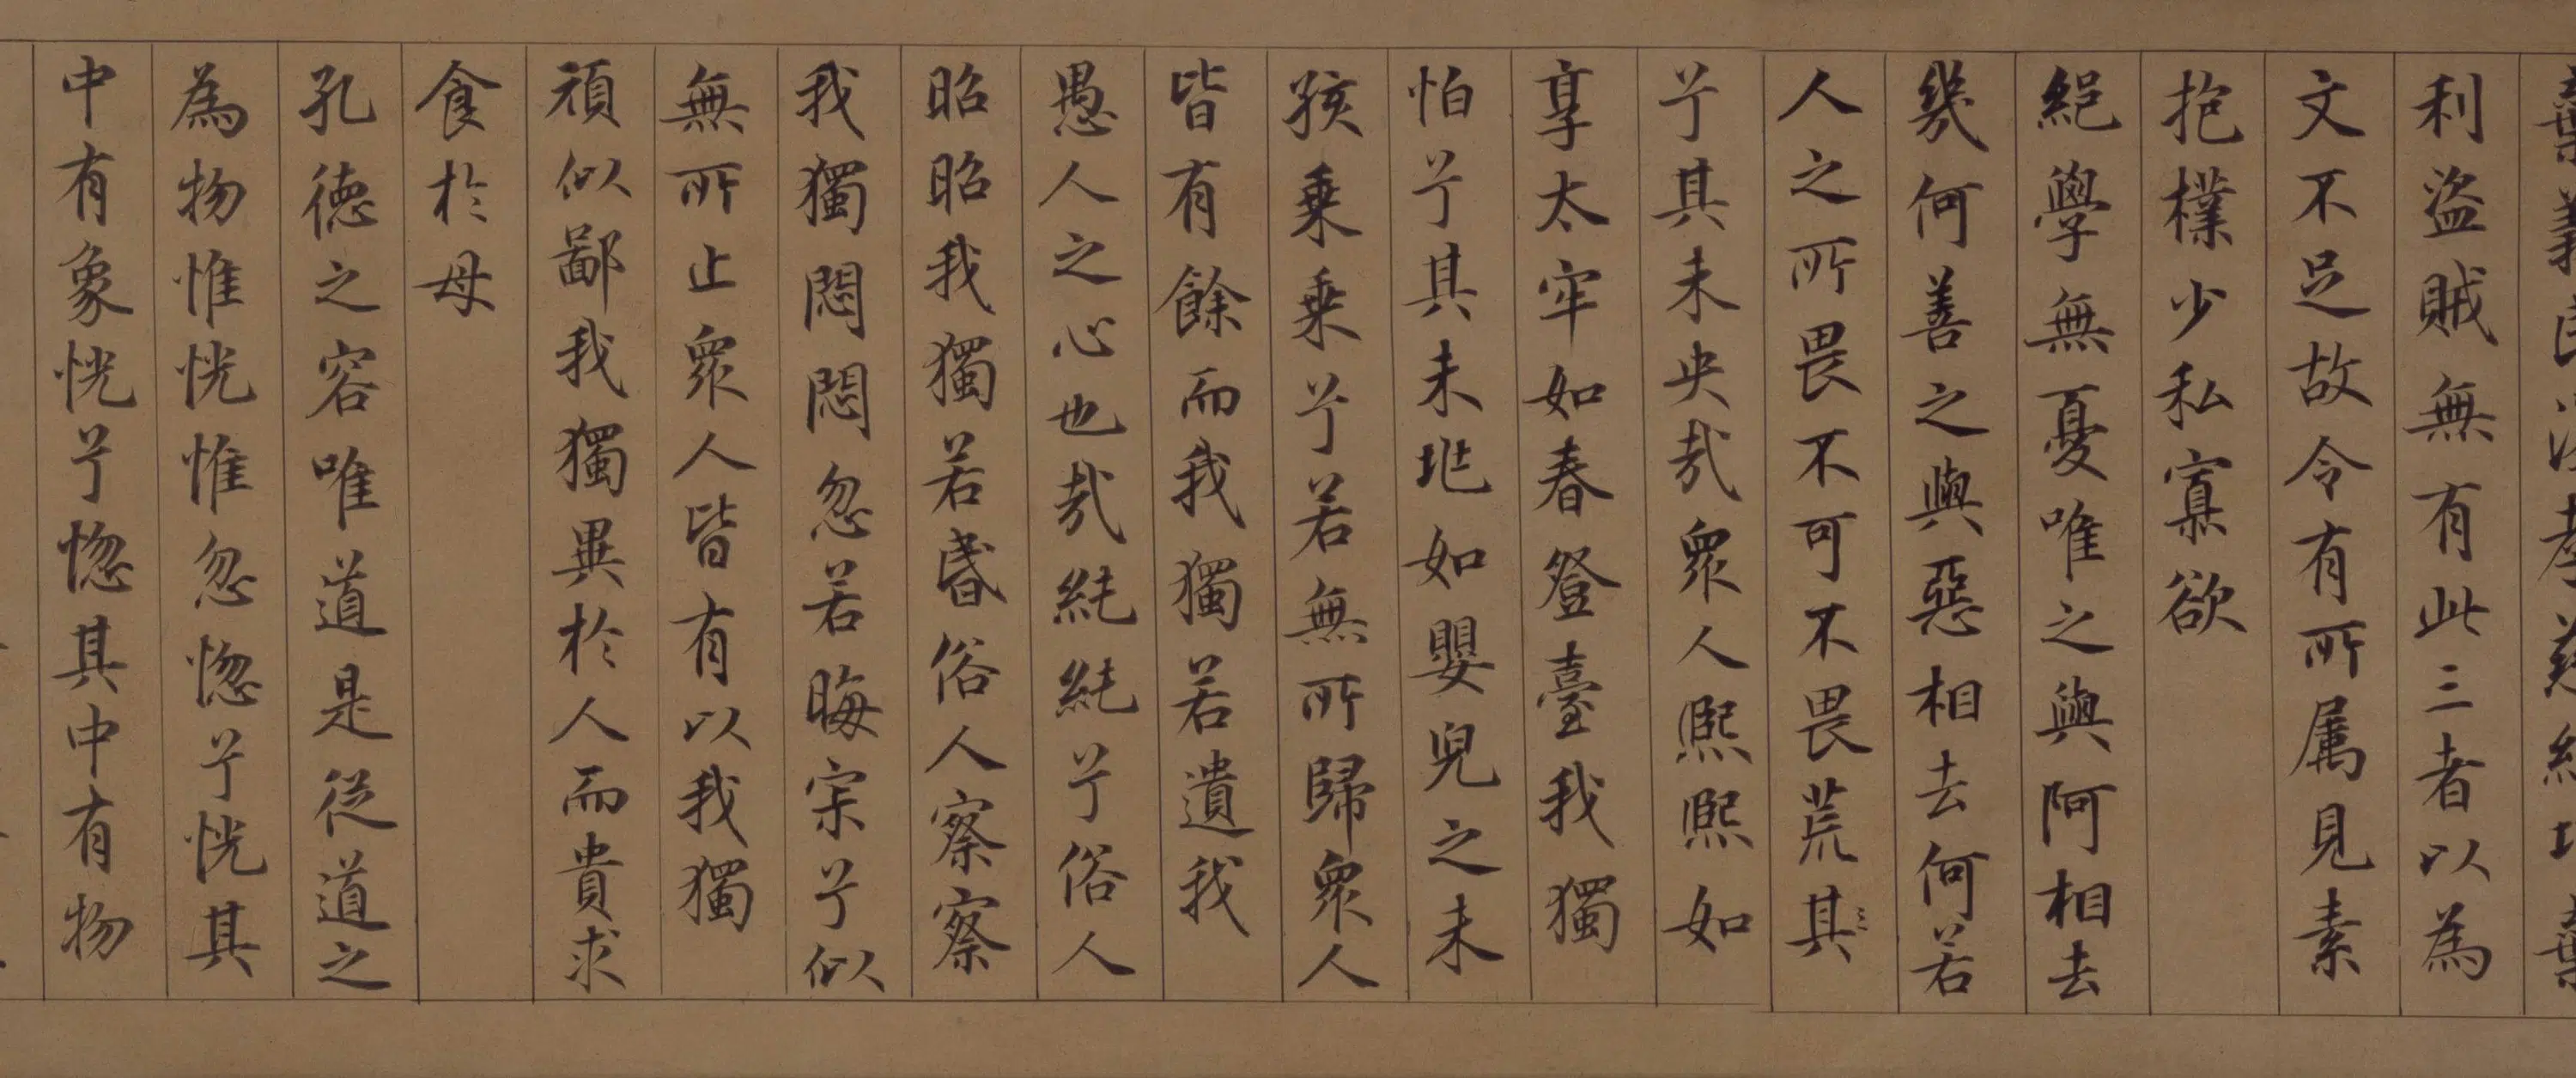 棄義民復孝慈絕巧棄
利盜賊無有此三者以為
文不足故令有所属見素
抱樸少私寡欲
絕學無憂唯之與阿相去
幾何善之與惡相去何若
人之所畏不可不畏荒其
兮其未央哉衆人熙熙如
享太牢如春登臺我獨
怕兮其未兆如嬰兒之未
孩乗乗兮若無所歸衆人
皆有餘而我獨若遺我
愚人之心也哉純純兮俗人
昭昭我獨若昏俗人察察
我獨悶悶忽若晦寂兮似
無所止衆人皆有以我獨
頑似鄙我獨異於人而貴求
食於母
孔德之容唯道是従道之
為物惟恍惟忽惚兮恍其
中有象恍兮惚其中有物